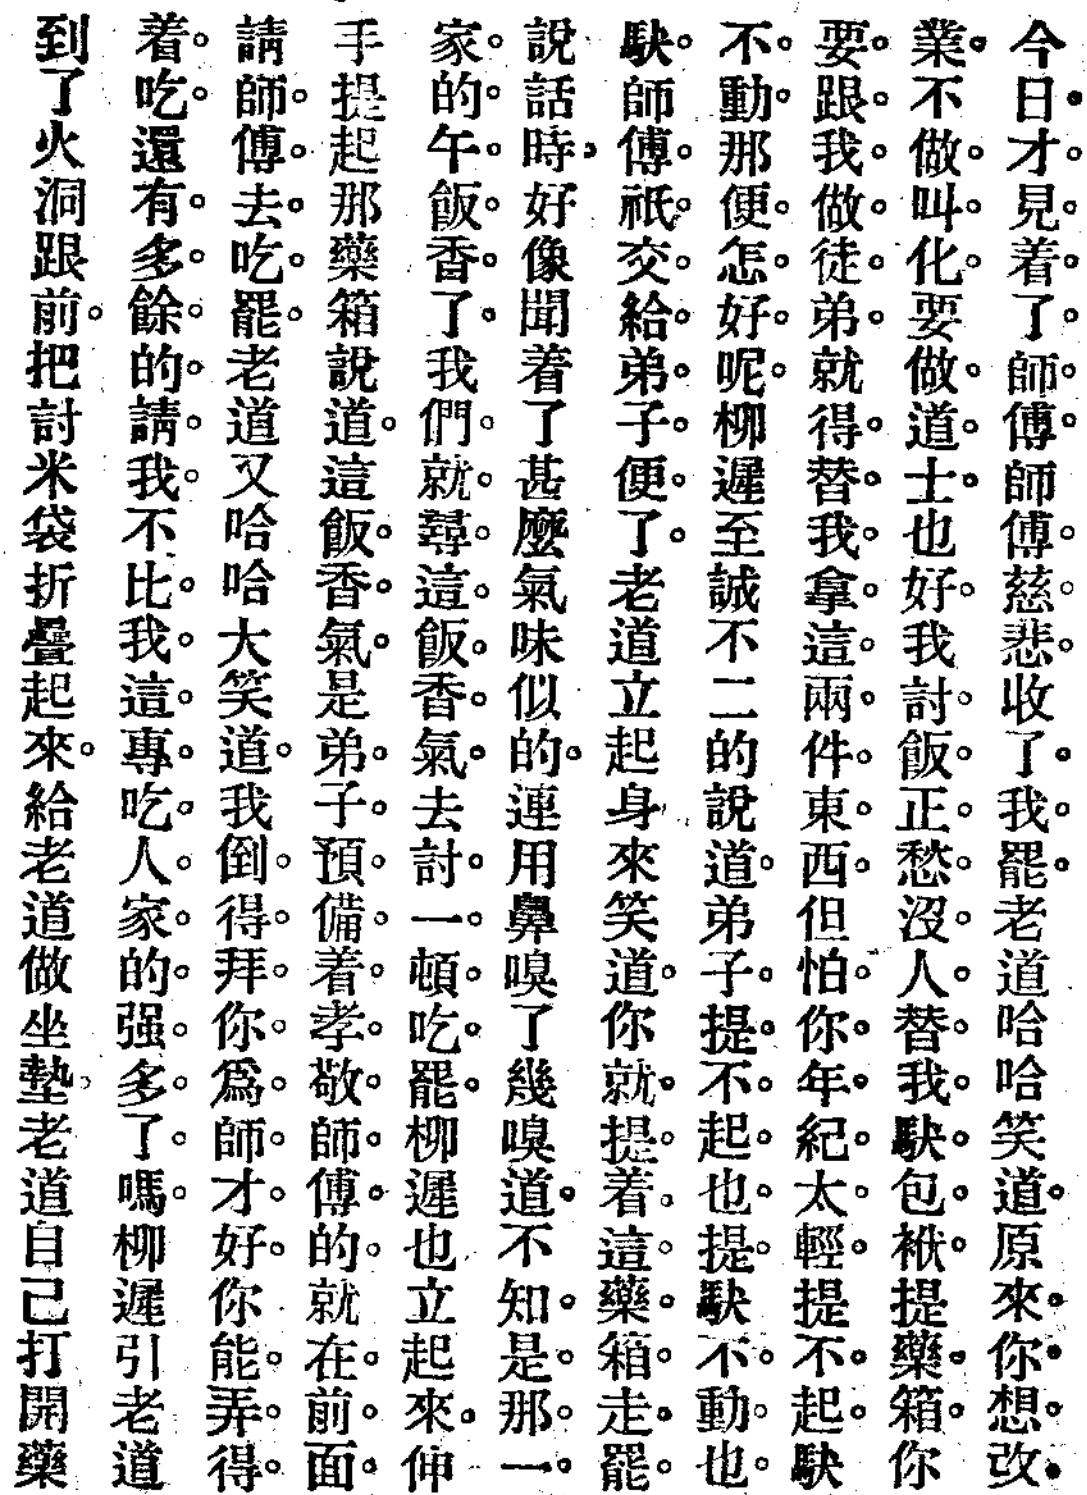 今日才見着了師傅師傅慈悲收了我罷老道哈哈笑道原來你想改
業不做叫化要做道士也好我討飯正愁沒人替我馱包袱提藥箱你
要跟我做徒弟就得替我拿這兩件東西但怕你年紀太輕提不起馱
不動那便怎好呢柳遲至誠不二的說道弟子提不起也提馱不動也
馱師傅祇交給弟子便了老道立起身來笑道你就提着這藥箱走罷
說話時好像聞着了甚麼氣味似的連用鼻嗅了幾嗅道不知是那一
家的午飯香了我們就尋這飯香氣去討一頓吃罷柳遲也立起來伸
手提起那藥箱說道這飯香氣是弟子預備着孝敬師傅的就在前面
請師傅去吃罷老道又哈哈大笑道我倒得拜你爲師才好你能弄得
着吃還有多餘的請我不比我這專吃人家的强多了嗎柳遲引老道
到了火洞跟前把討米袋折疊起來給老道做坐墊老道自己打開藥